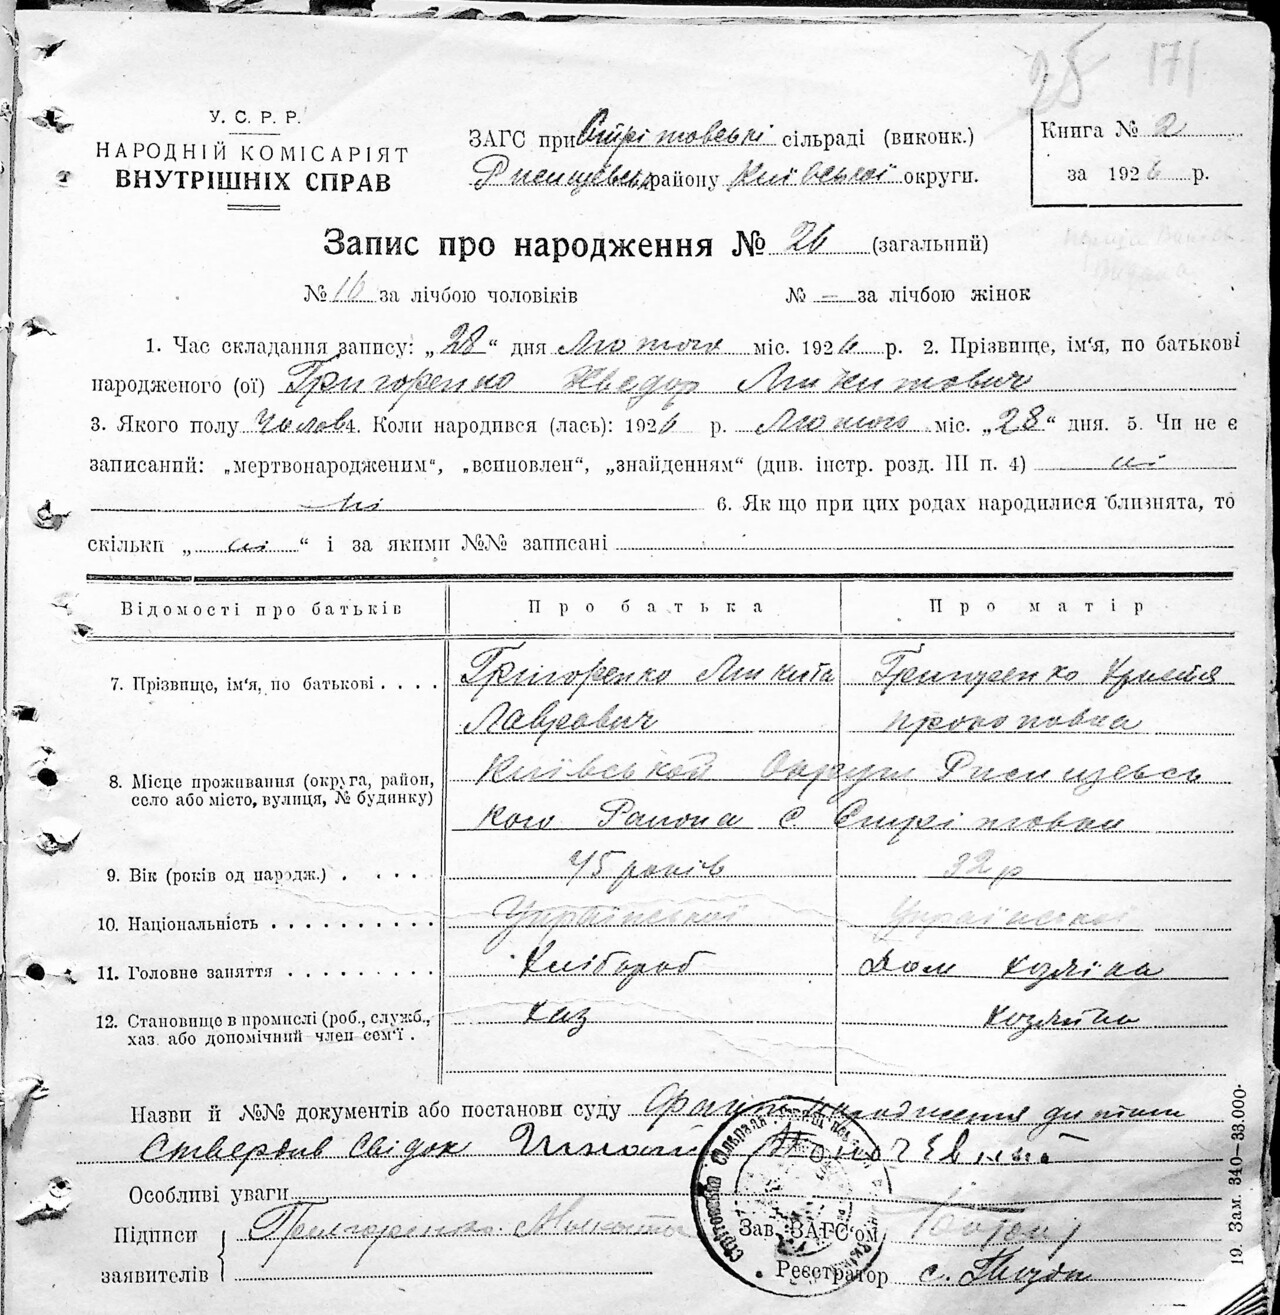 25 171
У. С. Р. Р.
НАРОДНІЙ КОМІСАРІЯТ
ВНУТРІШНІХ СПРАВ
ЗАГС при Стрітовські сільраді (виконк.)
Ржищевськ району Київської округи.
Книга № 2
за 1926 р.
Запис про народження № 26 (загальний)
№ 16 за лічбою чоловіків № – за лічбою жінок
1. Час складання запису: „28“ дня Лютого міс. 1926 р. 2. Прізвище, ім'я, по батькові
народженого (ої) Григоренко Хведор Микитович
3. Якого полу Чолов 4. Коли народився (лась): 1926 р. Лютого міс. „28“ дня. 5. Чи не є
записаний: „мертвонародженим“, „всиновлен“, „знайденням“ (див. інстр. розд. III п. 4) ні
ні 6. Як що при цих родах народилися близнята, то
скільки „ ні “ і за якими №№ записані
Відомості про батьків Про батька Про матір
7. Прізвище, ім'я, по батькові . . . . Григоренко Микита Григоренко
Лаврович
8. Місце проживання (округа, район, Київської Округи Рисищевсь
село або місто, вулиця, № будинку) кого Района с Стрітовки
9. Вік (років од народж.) . . . . . 45 років 32 р
10. Національність . . . . . . . . . . Української Української
11. Головне заняття . . . . . . . . . Хлібороб Дом хозяіка
12. Становище в промислі (роб., служб., Хаз Хозяйка
хаз. або допомічний член сем'ї .
Назви й №№ документів або постанови суду Факт народження дитини
Ствердив свідок
Особливі уваги
Підписи Григоренко Микита Зав. ЗАГС'ом
заявителів Реєстратор
19. Зам. 340–33.000.